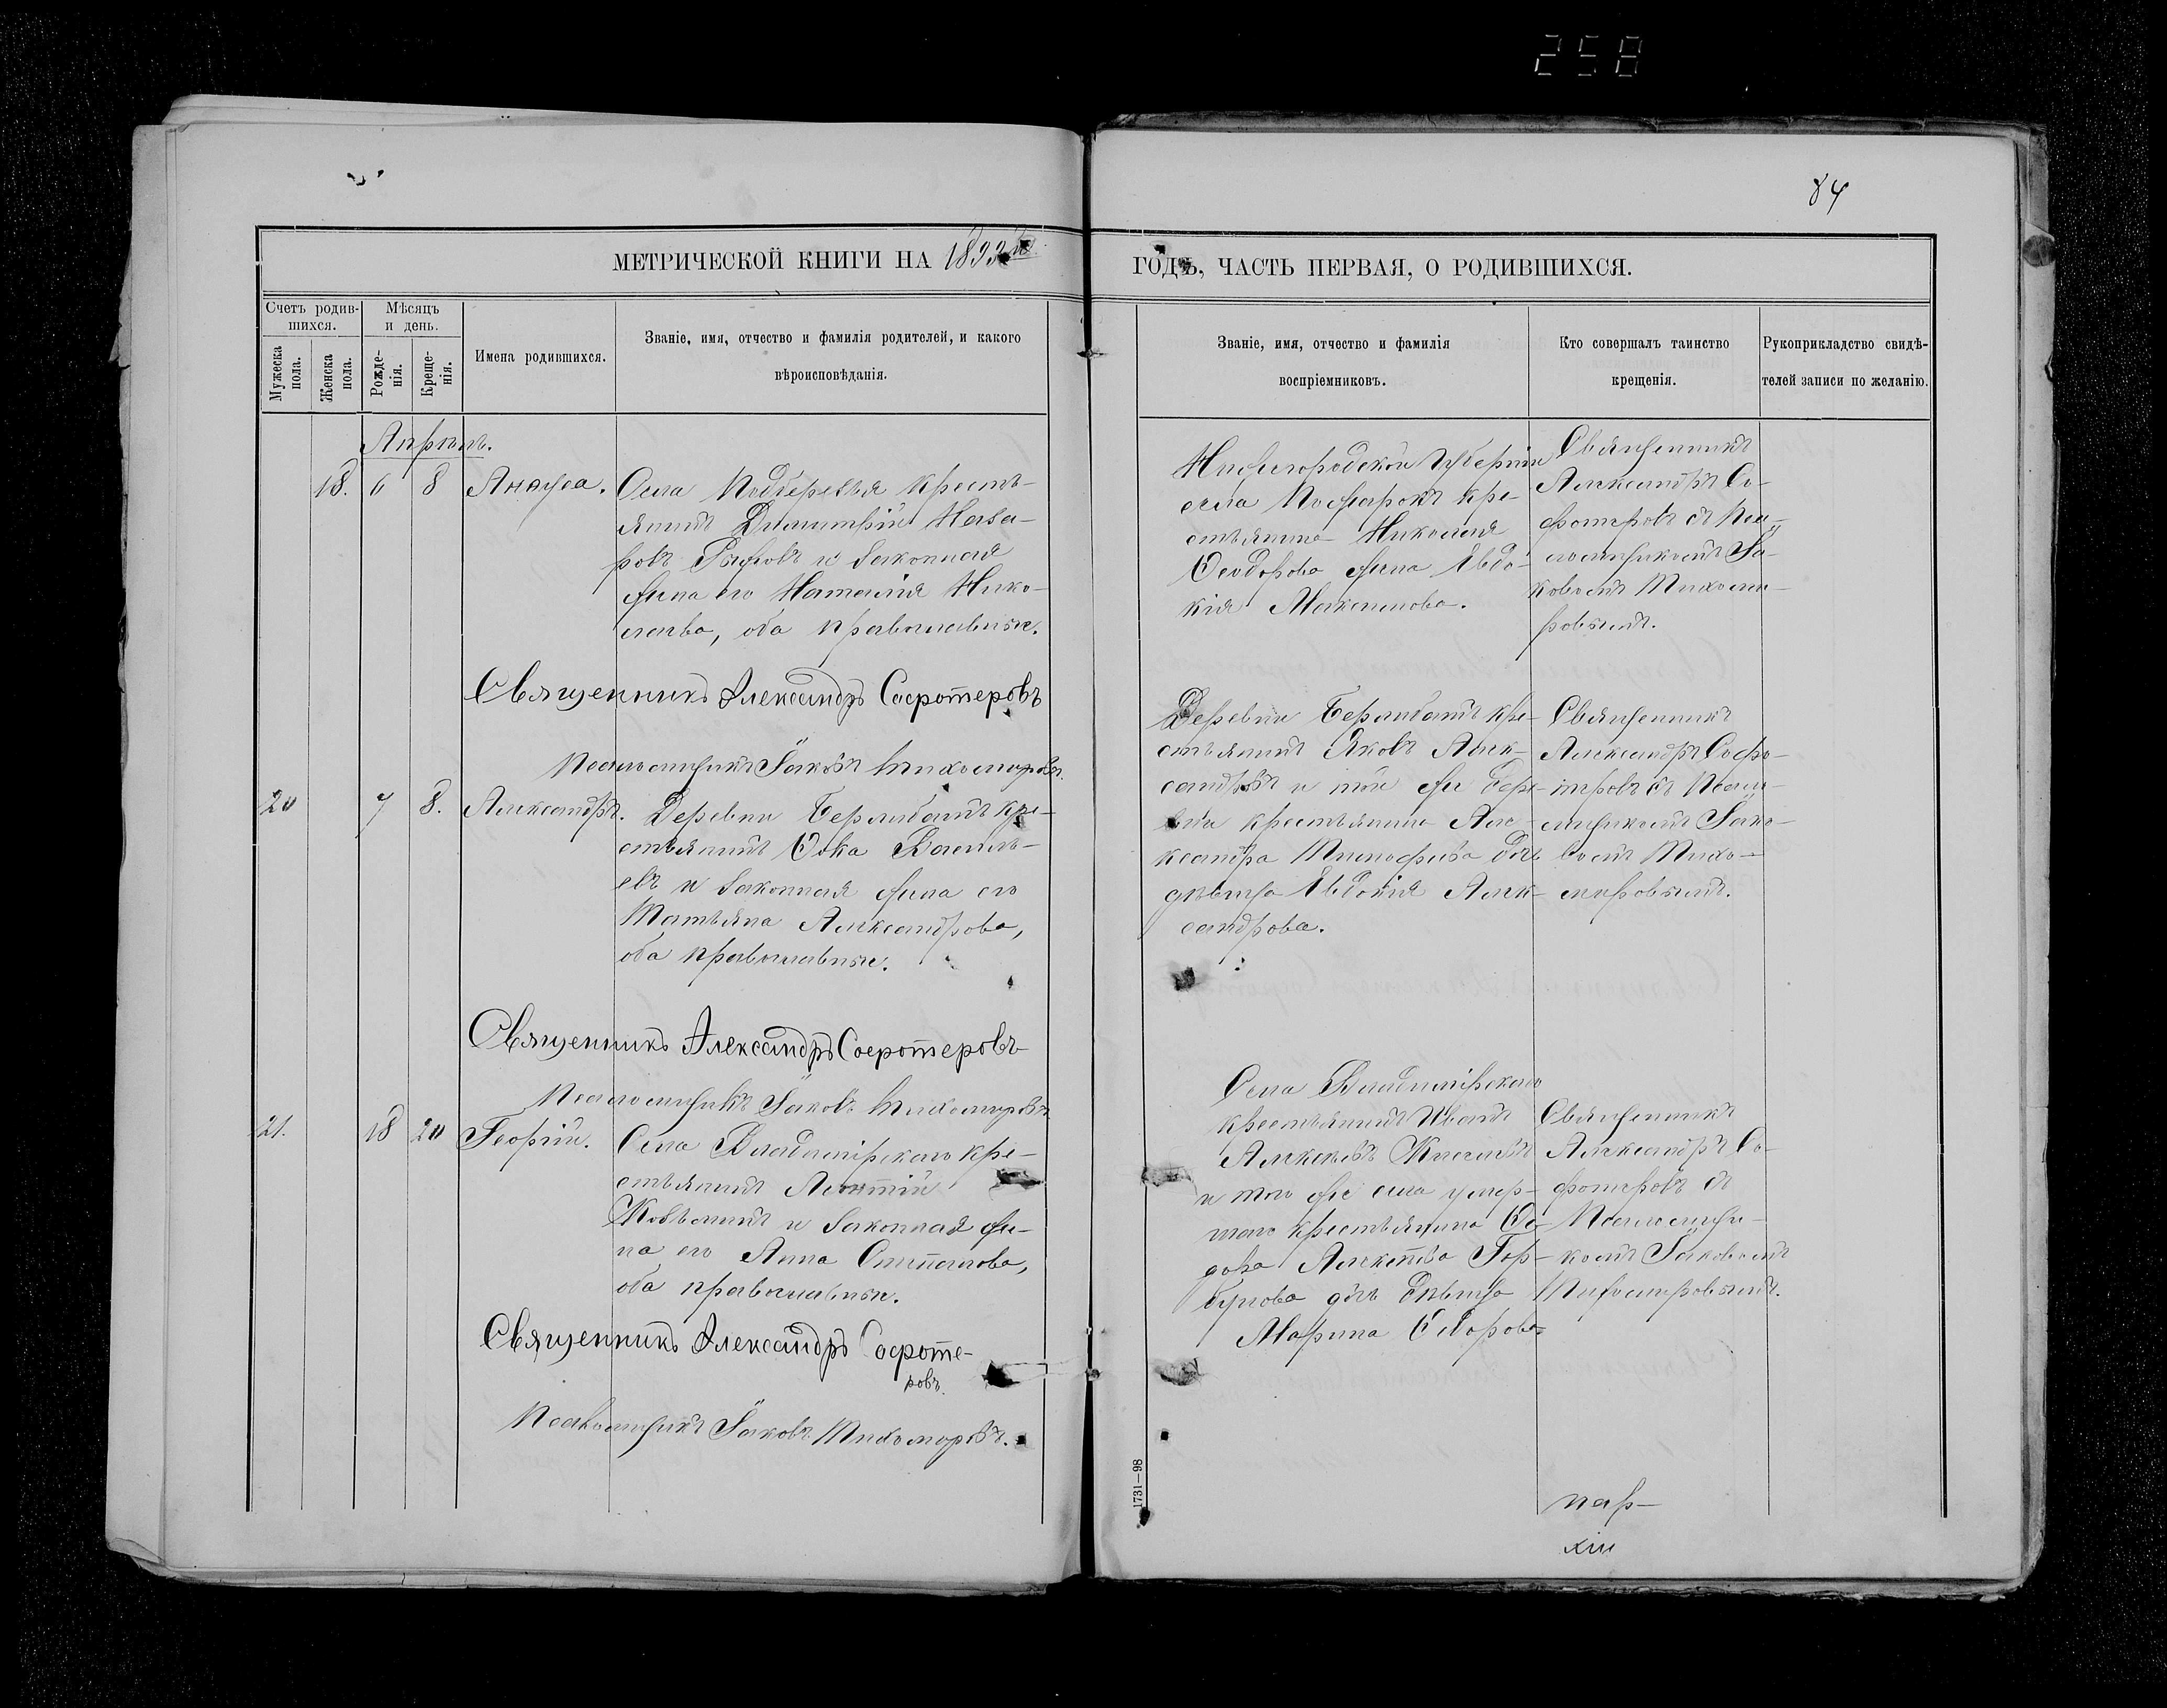 258
84
МЕТРИЧЕСКОЙ КНИГИ НА
ГОДЪ, ЧАСТЬ ПЕРВАЯ, О РОДИВШИХСЯ.
Счетъ родив-
шихся.
Мѣсяцъ
и день.
Мужеска
пола.
Женска
пола.
Рожде-
нія.
Креще-
нія.
Имена родившихся.
Званіе, имя, отчество и фамилія родителей, и какого
вѣроисповѣданія.
Званіе, имя, отчество и фамилія
воспріемниковъ.
Кто совершалъ таинство
крещенія.
Рукоприкладство свидѣ-
телей записи по желанію.
Апрѣль.
18. 6 8
Села крестъ-
янинъ Димитрій Наза-
ровъ и законная
жена его Наталія Нико-
лаева, оба православные.
Нижегородской губерніи
села кре-
стьянина Николая
Ѳеодорова жена Евдо-
кія Максимова.
Священникъ
Александръ Со-
фотеровъ съ Пса-
ломщикомъ Іа-
ковомъ Тихоми-
ровымъ.
Священникъ Александръ Софотеровъ
Псаломщикъ Іаковъ Тихомировъ.
20 7 8. Александръ.
Деревни кре-
стьянинъ Василь-
евъ и законная жена его
Татьяна Александрова,
оба православные.
Деревни кре-
стьянинъ Яковъ Алек-
сандровъ и той же дере-
вни крестьянина Але-
ксандра Тимофеева дочь
дѣвица Евдокія Алек-
сандрова.
Священникъ
Александръ Софо-
теровъ съ Псало-
мщикомъ Іако-
вомъ Тихо-
мировымъ.
Священникъ Александръ Софотеровъ
Псаломщикъ Іаковъ Тихомировъ
21. 18 20 Георгій.
Села Владимірскаго кре-
стьянинъ
и законная же-
на его Анна Степанова,
оба православные.
Села Владимірскаго
крестьянинъ Иванъ
Алексѣевъ
и того же села умер-
шаго крестьянина Ѳео-
дора Гор-
бунова дочь дѣвица
Марина Ѳеодорова
Священникъ
Александръ Со-
фотеровъ съ
Псаломщи-
комъ Іаковомъ
Тихомировымъ.
Священникъ Александръ Софоте-
ровъ.
Псаломщикъ Іаковъ Тихомировъ.
1731—98